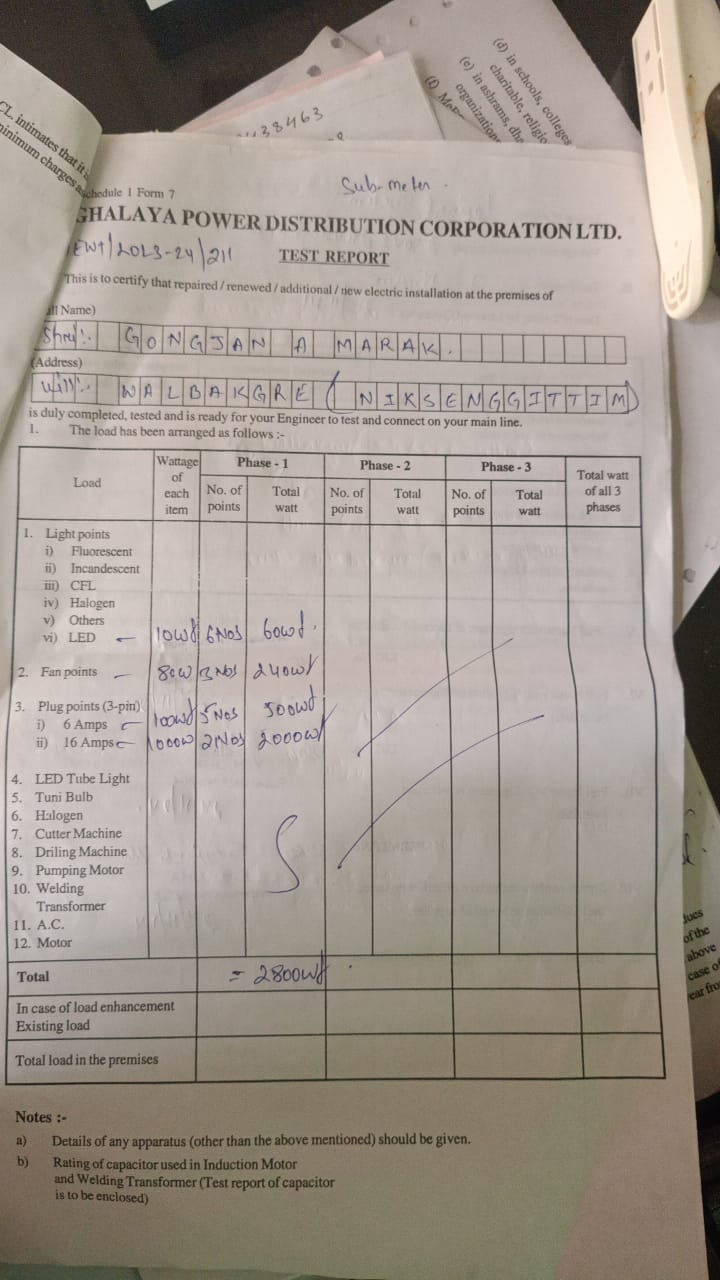 38463
(d) in schools, colleges
charitable, religio
(e) in ashrams, dha
organization
CL, intimates that it is
minimum charges a
Sub-meter.
chedule 1 Form 7
GHALAYA POWER DISTRIBUTION CORPORATION LTD.
/2023-24/211
TEST REPORT
This is to certify that repaired / renewed / additional / new electric installation at the premises of
ll Name)
Shri:. GONGJAN A MARAK.
(Address)
Vill:. WALBAKGRE (NIKSENGGITTIM)
is duly completed, tested and is ready for your Engineer to test and connect on your main line.
1. The load has been arranged as follows :-
Load Wattage of each item Phase - 1 Phase - 2 Phase - 3 Total watt of all 3 phases
No. of points Total watt No. of points Total watt No. of points Total watt
1. Light points
i) Fluorescent
ii) Incandescent
iii) CFL
iv) Halogen
v) Others
vi) LED 10wt 6Nos 60wt.
2. Fan points 80w 3Nos 240wt
3. Plug points (3-pin)
i) 6 Amps 100wt 5Nos 500wt
ii) 16 Amps 1000w 2Nos 2000wt
4. LED Tube Light
5. Tuni Bulb
6. Halogen
7. Cutter Machine
8. Driling Machine
9. Pumping Motor
10. Welding
Transformer
11. A.C.
12. Motor
Total = 2800wt
In case of load enhancement
Existing load
Total load in the premises
Notes :-
a) Details of any apparatus (other than the above mentioned) should be given.
b) Rating of capacitor used in Induction Motor
and Welding Transformer (Test report of capacitor
is to be enclosed)
dues
of the
above
case of
ear fro